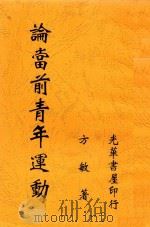 論當前青年運動
方敏著
光華書屋印行